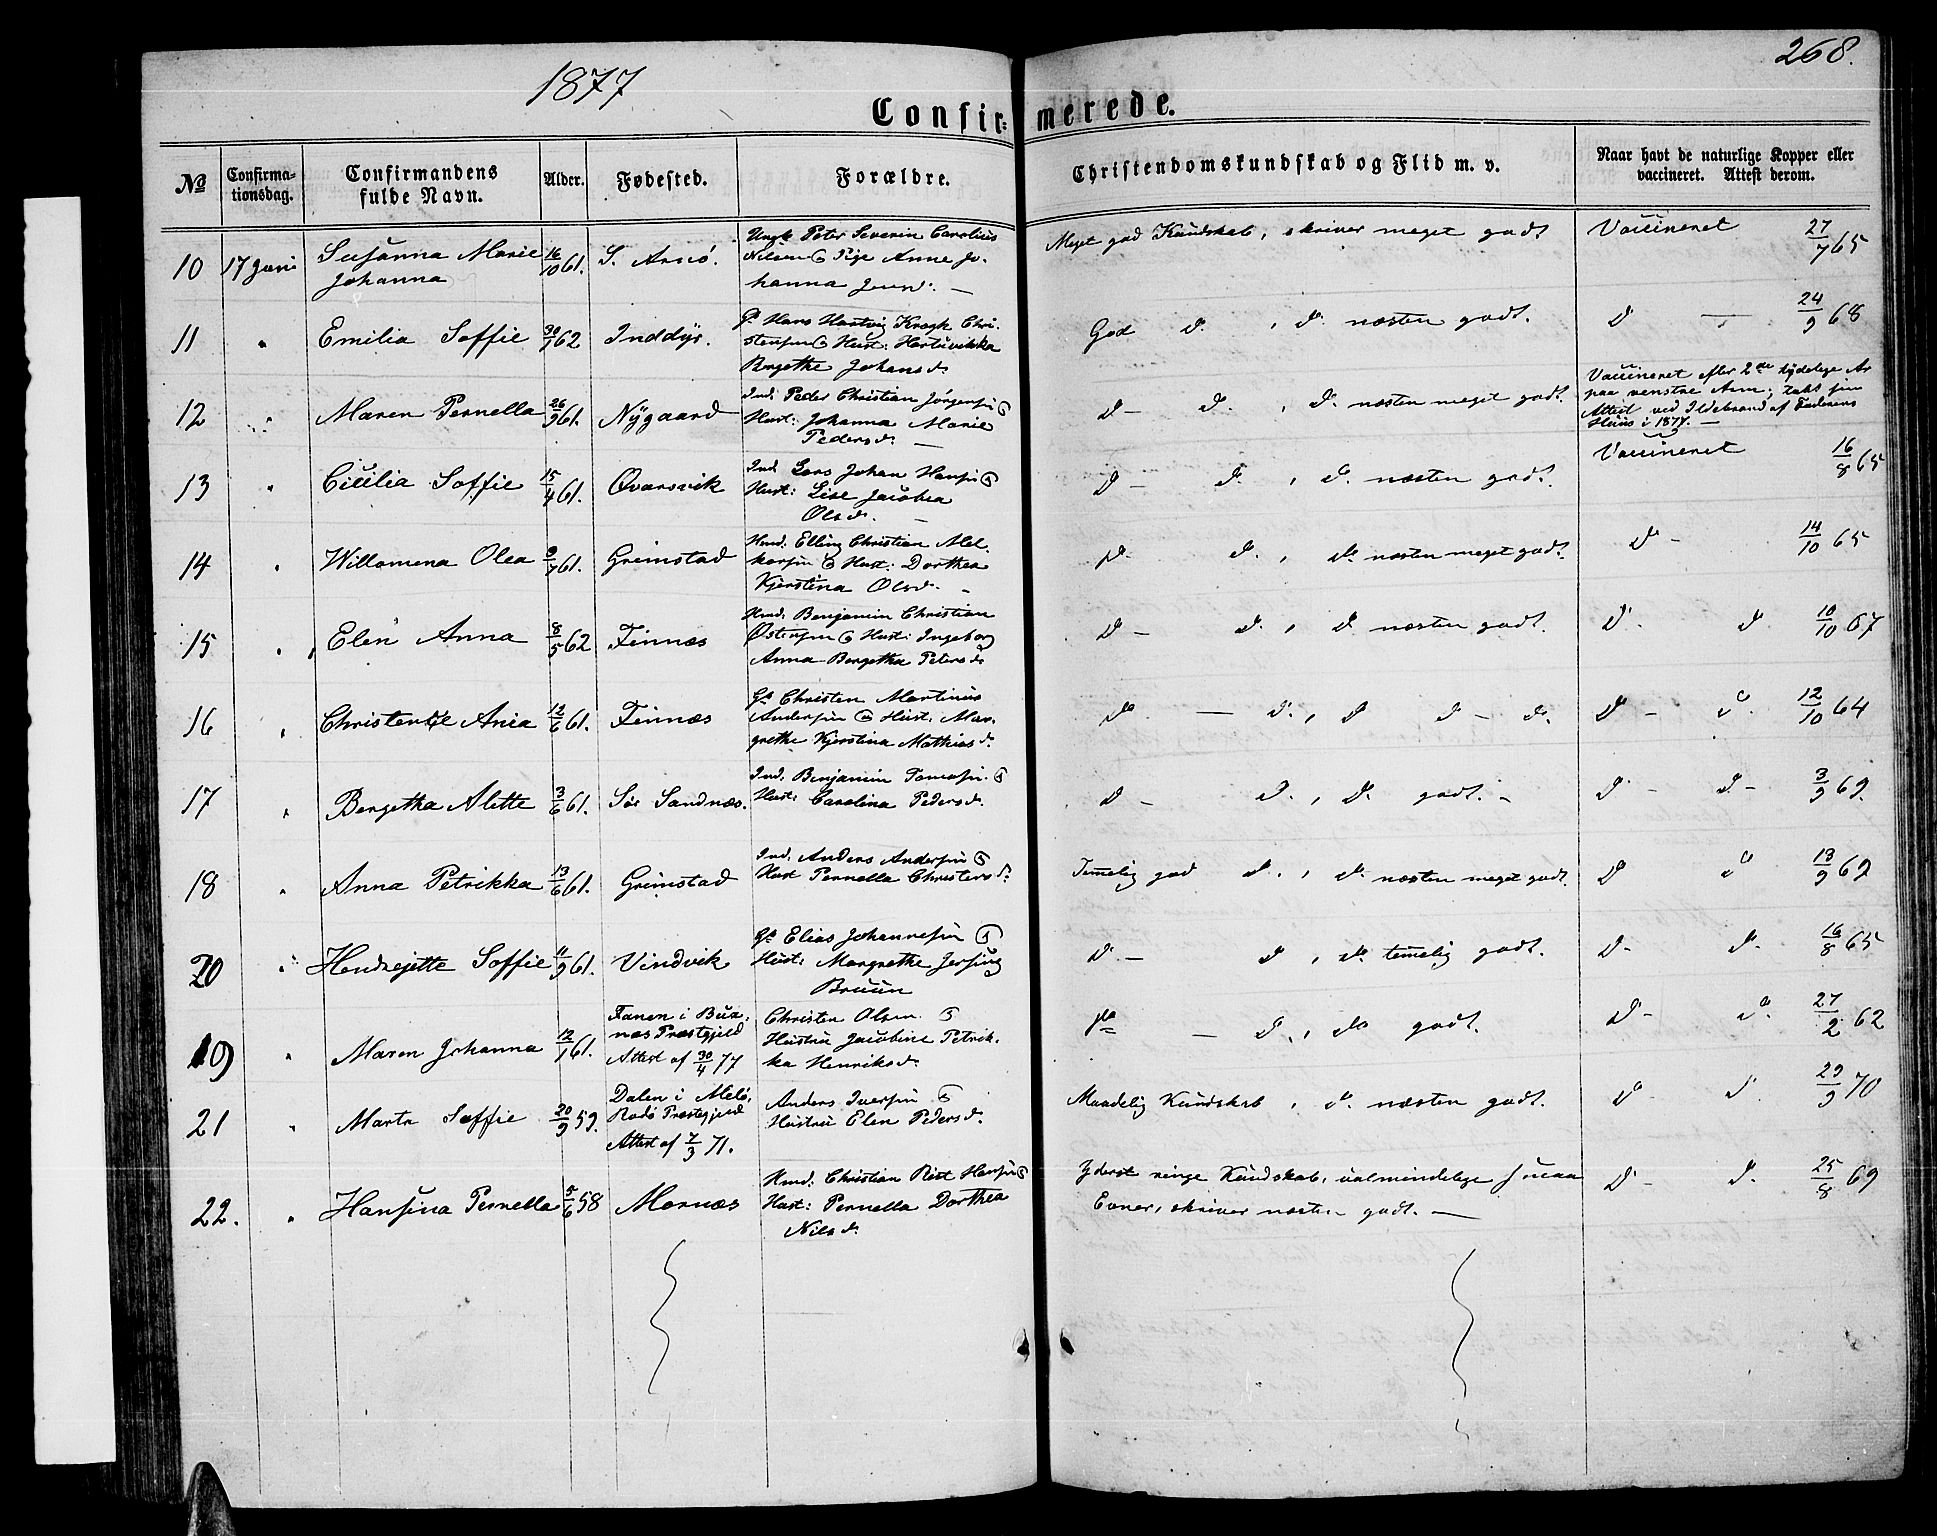 1877
268.
Confir- merede.
No
Confirma-
tionsdag.
Confirmandens
fulde Navn.
Alder.
Fødested.
Forældre.
Christendomskundskab og Flid m. v.
Naar havt de naturlige Kopper eller
vaccineret. Attest derom.
10 17 Juni Susanna Marie 16/10 61. S. Arnø.
Johanna
Ungk. Peter Severin Carolius
Nilsen & Pige Anne Jo-
hanna Jensd. —
Meget god Kundskab, skriver meget godt
Vaccineret 27/7 65
11 " Emilia Soffie 30/1 62 Inddyr.
P. Hans Hartvig Krogh Chri-
stensen & Hust: Hartvikka
Bergethe Johansd.
God D. , D. næsten godt.
D — 24/9 68
12 " Maren Pernella 26/9 61. Nygaard
Ind. Peder Christian Jørgensen &
Hust: Johanna Marie
Pedersd. —
D — D. , D. næsten meget godt.
Vaccineret efter 2de tydelige Ar
paa venstre Arm; tabt sin
Attest ved Ildebrand af Faderens
Huus i 1877. —
13 " Cicilia Soffie 15/4 61. Qvarsvik
Ind Lars Johan Hansen &
Hust: Lise Jacobea
Olsd. —
D — D. , D. næsten godt.
Vaccineret 16/8 65
14 " Willomena Olea 9/7 61. Grimstad
Hmd. Elling Christian Mel-
korsen & Hust: Dorthea
Kjerstina Olsd. —
D. D. , D. næsten meget godt.
D — 14/10 65
15 " Elen Anna 8/5 62 Finnæs
Hmd. Benjamin Christian
Østensen & Hust: Ingeborg
Anna Bergetha Petersd.
D — D. , D. næsten godt.
D. D 10/10 67
16 " Christense Ania 12/6 61. Finnæs
Gb. Christen Martinus
Andersen & Hust. Mar-
grethe Kjerstina Mathiasd.
D — D. , D D — D.
D — D. 12/10 64
17 " Bergetha Alette 3/6 61. Sør Sandnæs.
Ind. Benjamin Tomassen &
Hust: Carolina Pedersd.
D — D. , D. godt. —
D — D — 3/9 69.
18 " Anna Petrikka 13/6 61. Grimstad
Ind. Anders Andersen &
Hust Pernella Christensd.
Temelig god D. , D. næsten meget godt.
D D 13/9 69
20 " Hendrejette Soffie 11/9 61. Vindvik
Gb. Elias Johannesen &
Hust: Margrethe Jersing
Bruun
D. — D , D. temelig godt.
D — D. 16/8 65
19 " Maren Johanna 12/1 61.
Fanen i Bux-
næs Præstegjeld
Attest af 30/4 77
Christen Olsen &
Hustru Jacobine Petrik-
ka Henriksd.
D — D. , D. godt.
D — D. 27/2 62
21 " Marta Soffie 20/9 59.
Dalen i Melø,
Rødø Præstegjeld
Attest af 7/3 71.
Anders Iversen &
Hustru Elen Pedersd.
Maadelig Kundskab , D. næsten godt.
D D. 29/9 70
22. " Hansina Pernella 5/6 58 Mornæs
Hmd. Christian Rist Hansen &
Hust: Pernella Dorthea
Nilsd.
Yderst ringe Kundskab, ualmindelige smaa
Evner, skriver næsten godt. —
D — D. 25/8 69